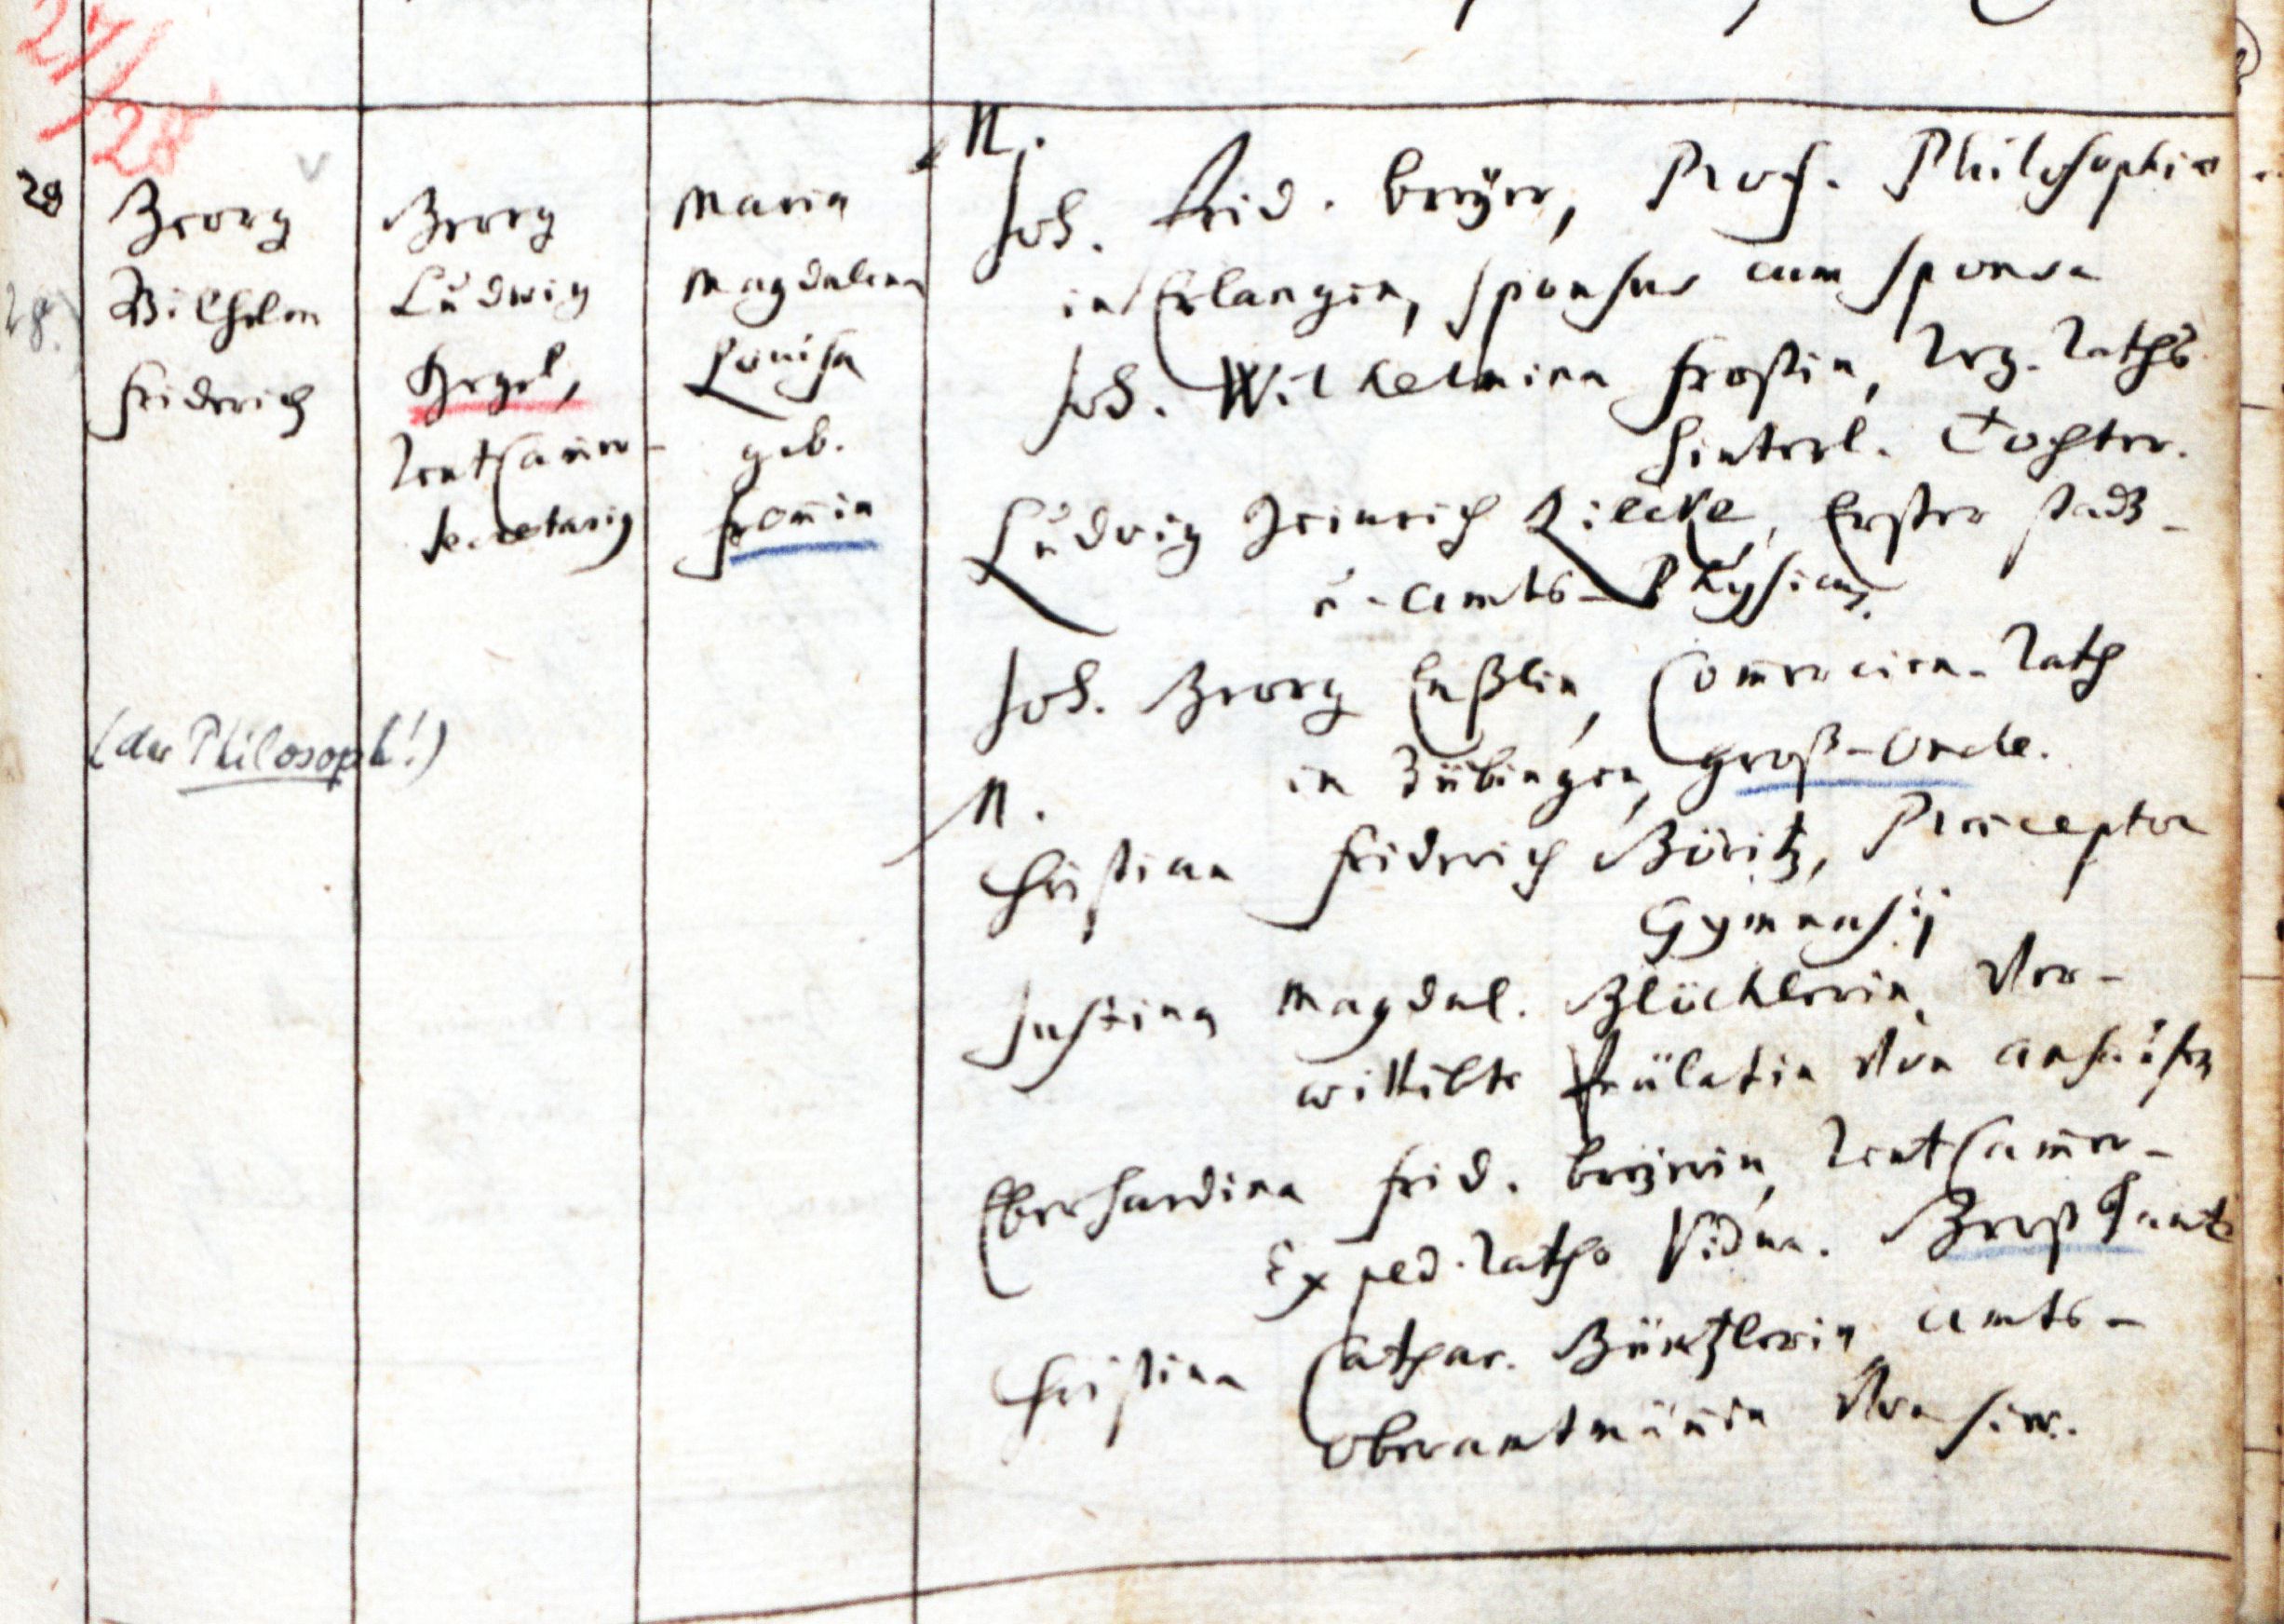 27/28
28
Georg
Wilhelm
Friderich
(der Philosoph!)
Georg
Ludwig
Hegel,
RentCammer-
Secretariy
Maria
Magdalena
Louisa
geb.
Fromin
N.
Joh. Frid. Breyer, Prof. Philosophiae
in Erlangen, sponsus cum sponsa
Joh. Wilhelmina Frostin, Reg. Raths
hinterl. Tochter.
Ludwig Heinrich Riecke, Erster Stadt-
u. Amts-Physicus.
Joh. Georg Enßlin, Commercien-Rath
in Tübingen, Groß-Oncle.
N.
Christian Friderich Göritz, Praeceptor
Gymnasij
Justina Magdal. Glöcklerin, Ver-
wittibte Prälatin von Anhausen
Eberhardina Frid. Breyerin, RentCammer-
Exped. Raths Vidua. Groß Tante
Christina Cathar. Güntzlerin, Amts-
Oberamtmännin von hier.